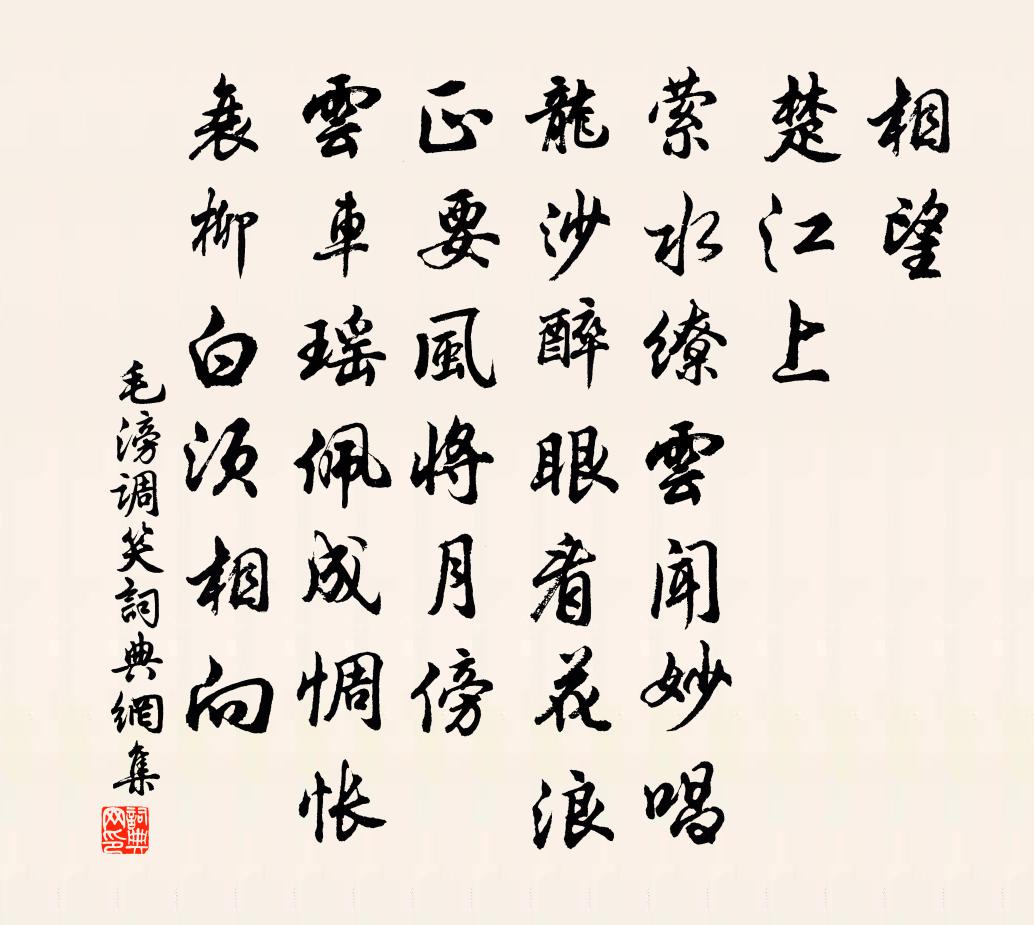 相望
楚江上
萦水缭雲闻妙唱
龍沙醉眼看花浪
正要風将月傍
雲車瑶佩成惆怅
衰柳白须相向
毛滂调笑詞典網集
詞典网印